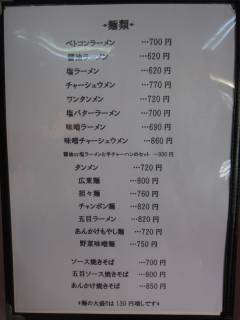 *麺類*
ベトコンラーメン …700 円
醤油ラーメン …620 円
塩ラーメン …620 円
チャーシュウメン …770 円
ワンタンメン …720 円
塩バターラーメン …700 円
味噌ラーメン …690 円
味噌チャーシュウメン …860 円
醤油or塩ラーメンと半チャーハンのセット …930 円
タンメン …720 円
広東麺 …800 円
担々麺 …760 円
チャンポン麺 …820 円
五目ラーメン …820 円
あんかけもやし麺 …720 円
野菜味噌麺 …750 円
ソース焼きそば …700 円
五目ソース焼きそば …800 円
あんかけ焼きそば …850 円
*麺の大盛りは 130 円増しです*